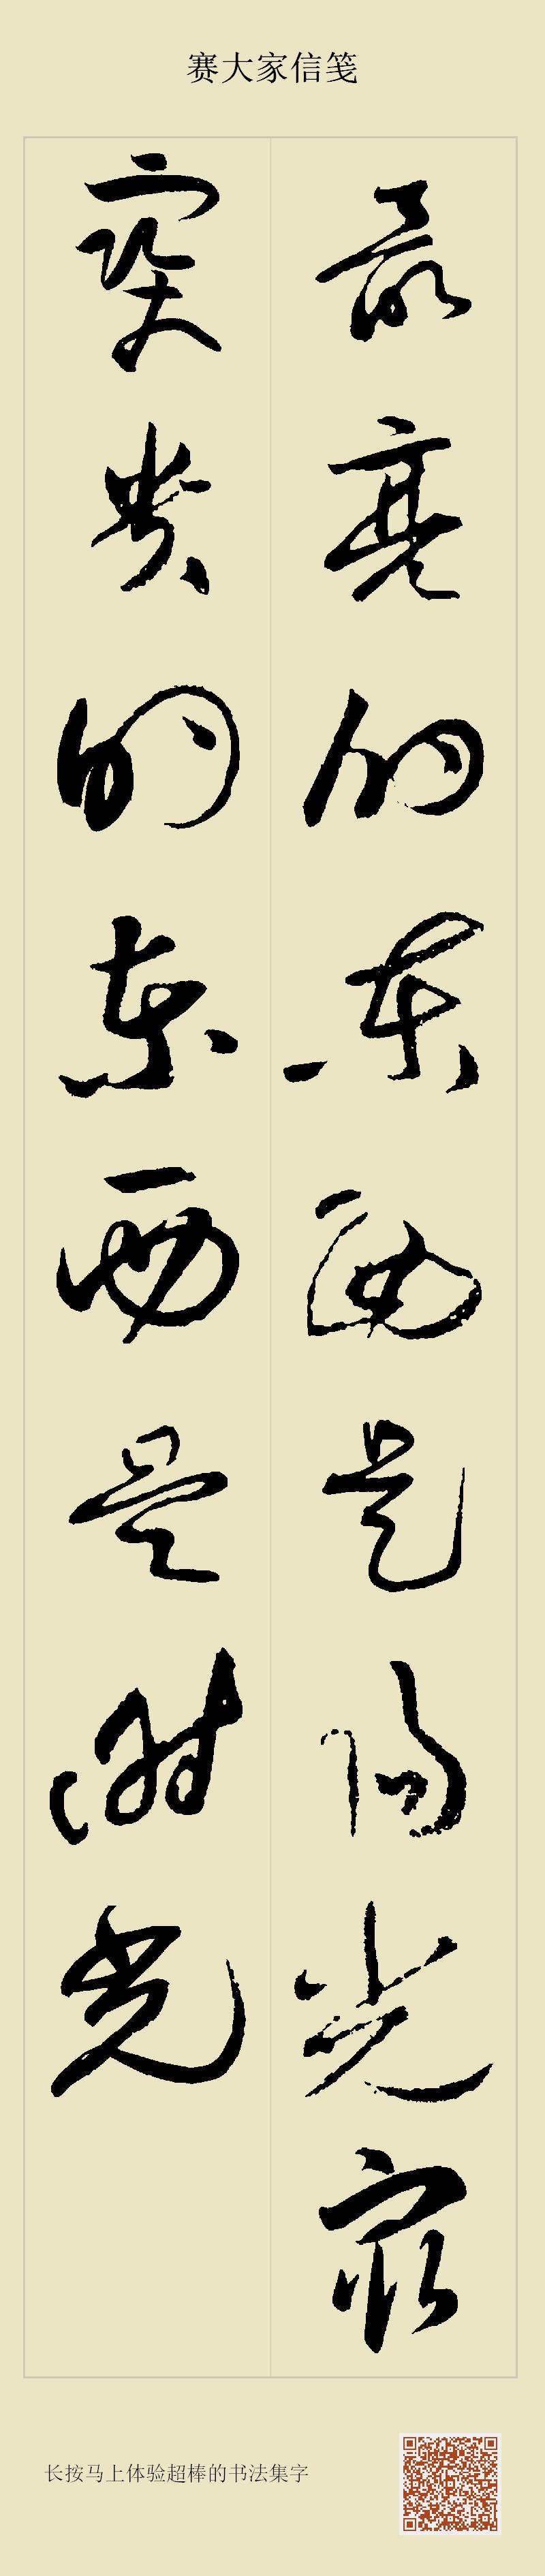 赛大家信笺
最亮的东西是阳光最
宝贵的东西是时光
长按马上体验超棒的书法集字